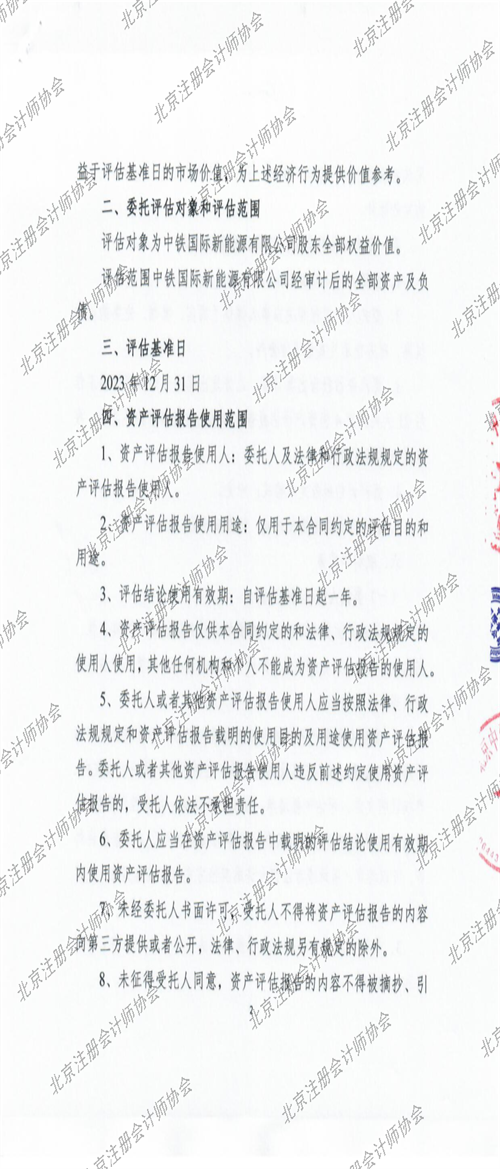 益于评估基准日的市场价值，为上述经济行为提供价值参考。
二、委托评估对象和评估范围
评估对象为中铁国际新能源有限公司股东全部权益价值。
评估范围中铁国际新能源有限公司经审计后的全部资产及负
债。
三、评估基准日
2023年12月31日
四、资产评估报告使用范围
1、资产评估报告使用人：委托人及法律和行政法规规定的资
产评估报告使用人。
2、资产评估报告使用用途：仅用于本合同约定的评估目的和
用途。
3、评估结论使用有效期：自评估基准日起一年。
4、资产评估报告仅供本合同约定的和法律、行政法规规定的
使用人使用，其他任何机构和个人不能成为资产评估报告的使用人。
5、委托人或者其他资产评估报告使用人应当按照法律、行政
法规规定和资产评估报告载明的使用目的及用途使用资产评估报
告。委托人或者其他资产评估报告使用人违反前述约定使用资产评
估报告的，受托人依法不承担责任。
6、委托人应当在资产评估报告中载明的评估结论使用有效期
内使用资产评估报告。
7、未经委托人书面许可，受托人不得将资产评估报告的内容
向第三方提供或者公开，法律、行政法规另有规定的除外。
8、未征得受托人同意，资产评估报告的内容不得被摘抄、引
3
北京注册会计师协会